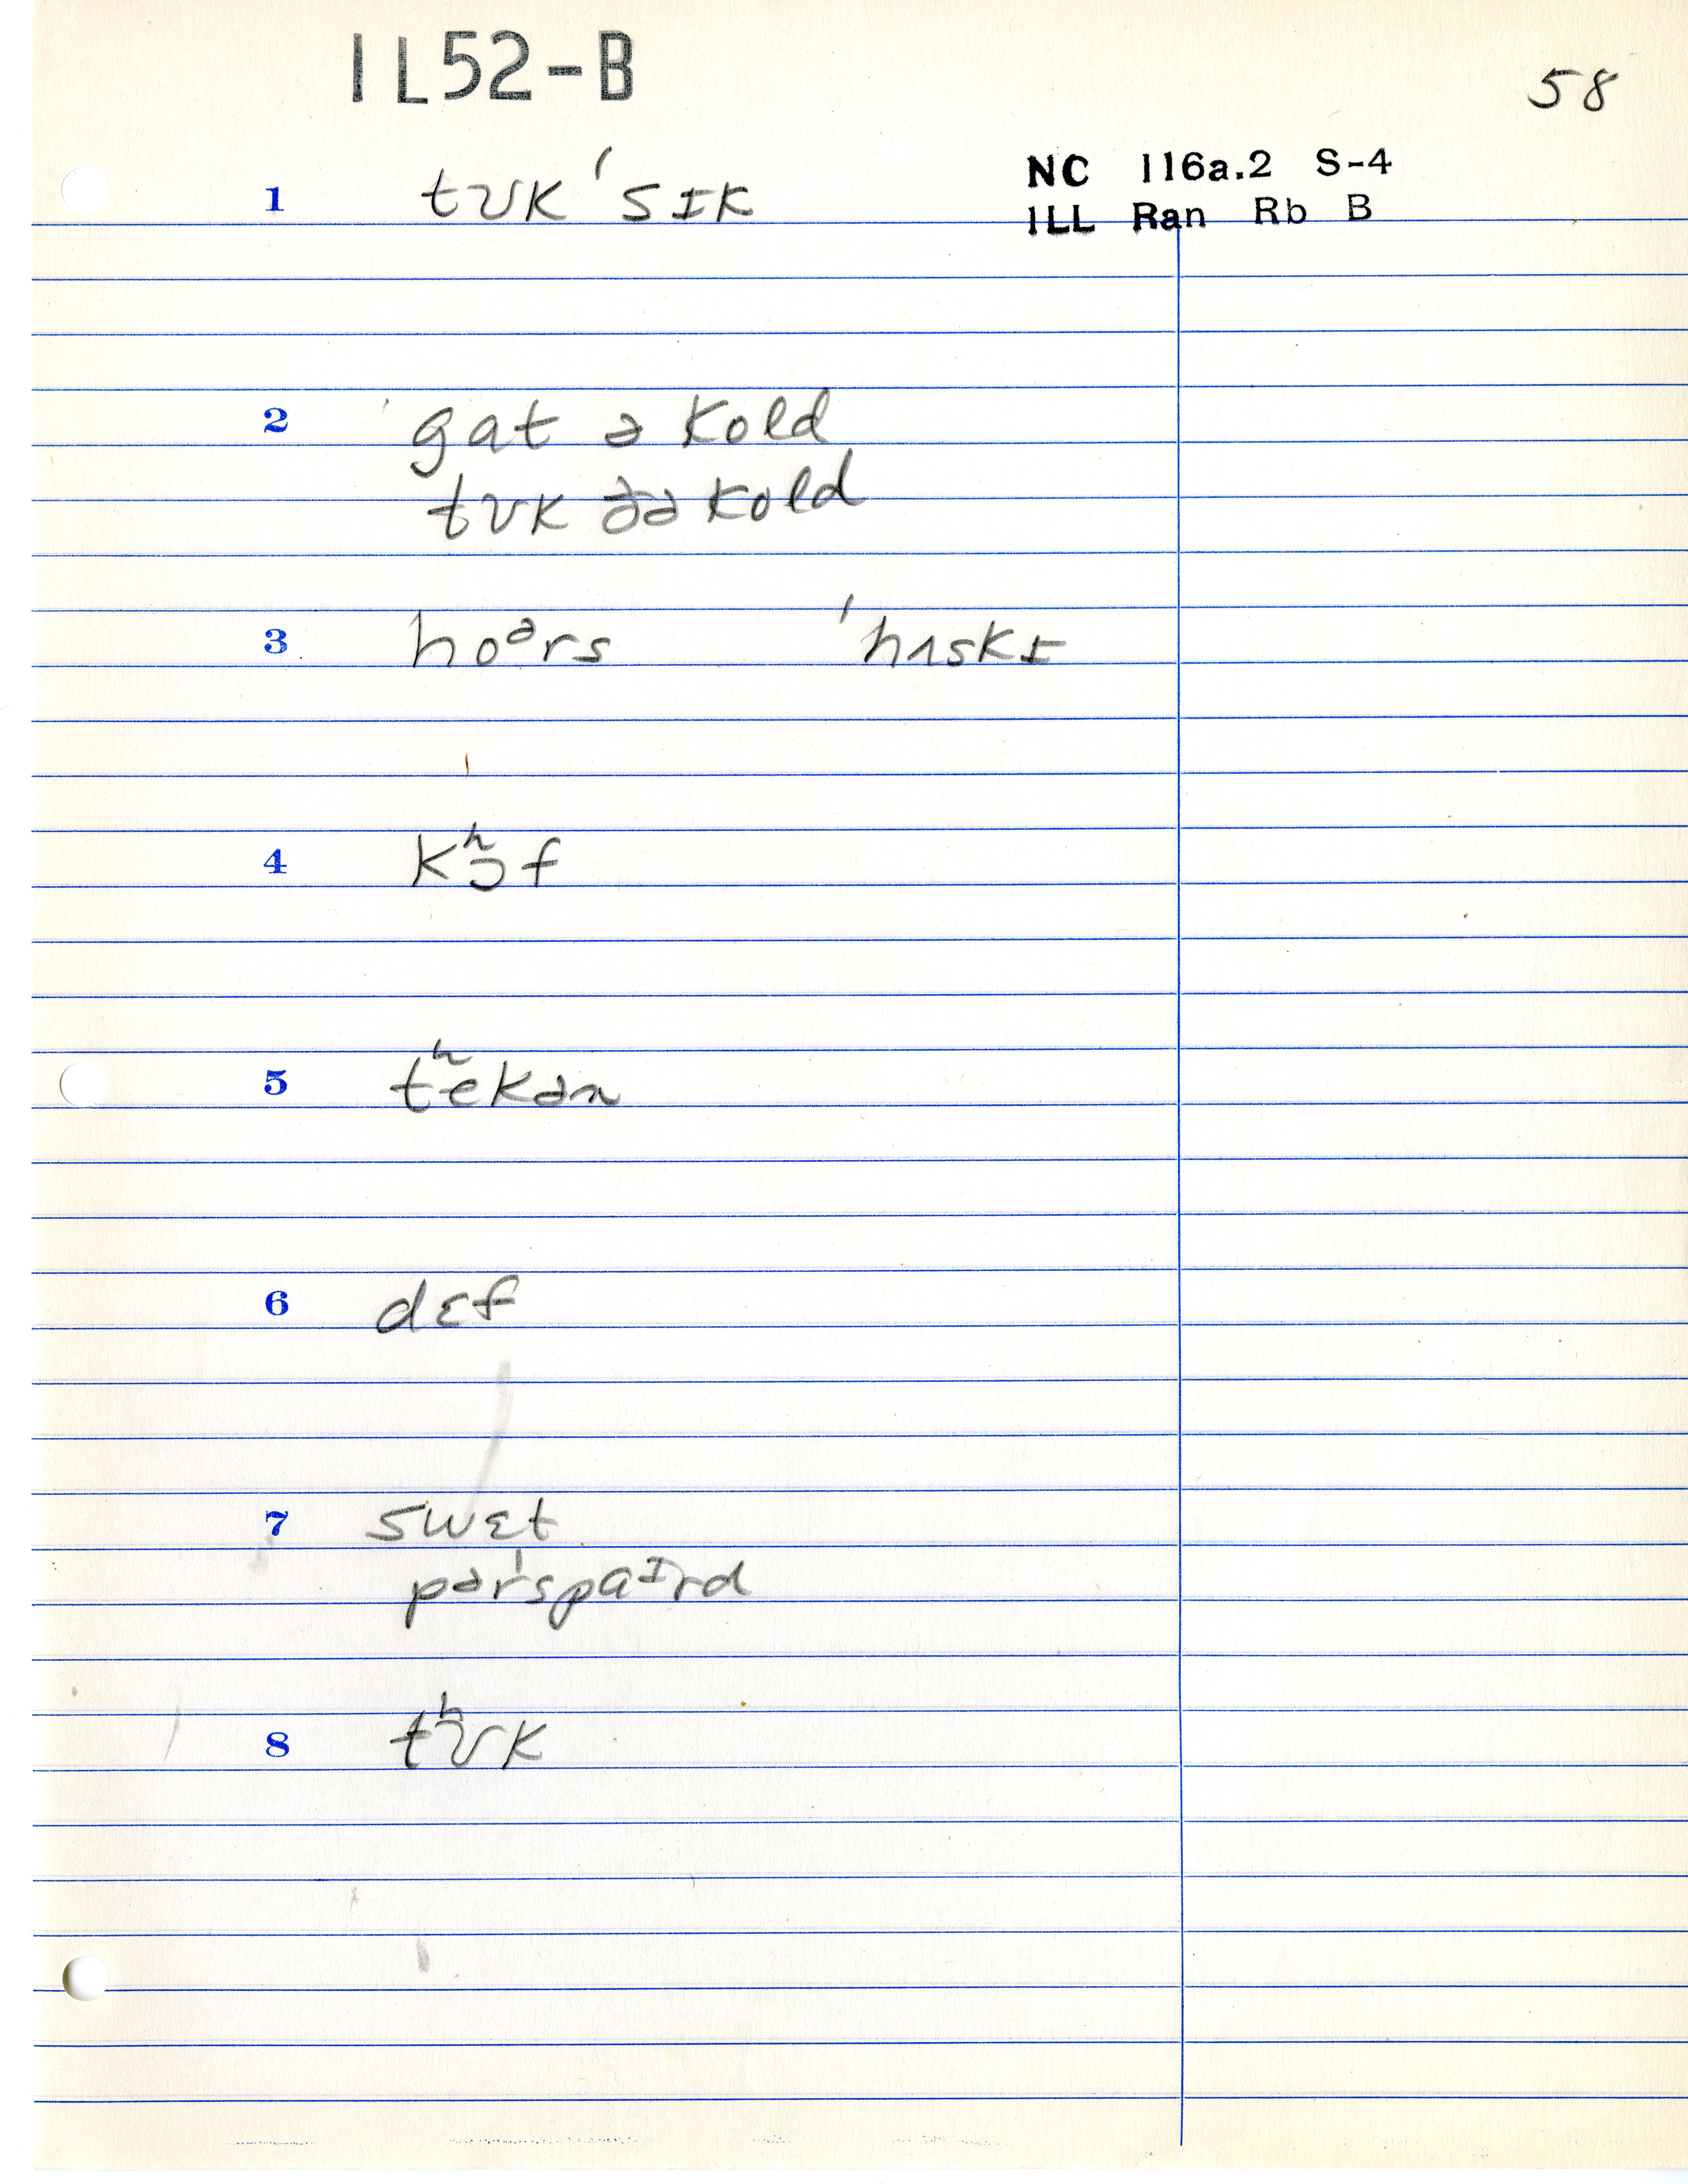 IL52-B
58
NC 116a.2 S-4
ILL Ran Rb B
1 tʊk ˈsɪk
2 gat ə kold
tʊk ðə kold
3 hoᵊrs ˈhʌskɪ
4 kʰɔf
5 tʰekən
6 dɛf
7 swɛt
pərˈspaɪrd
8 tʰʊk